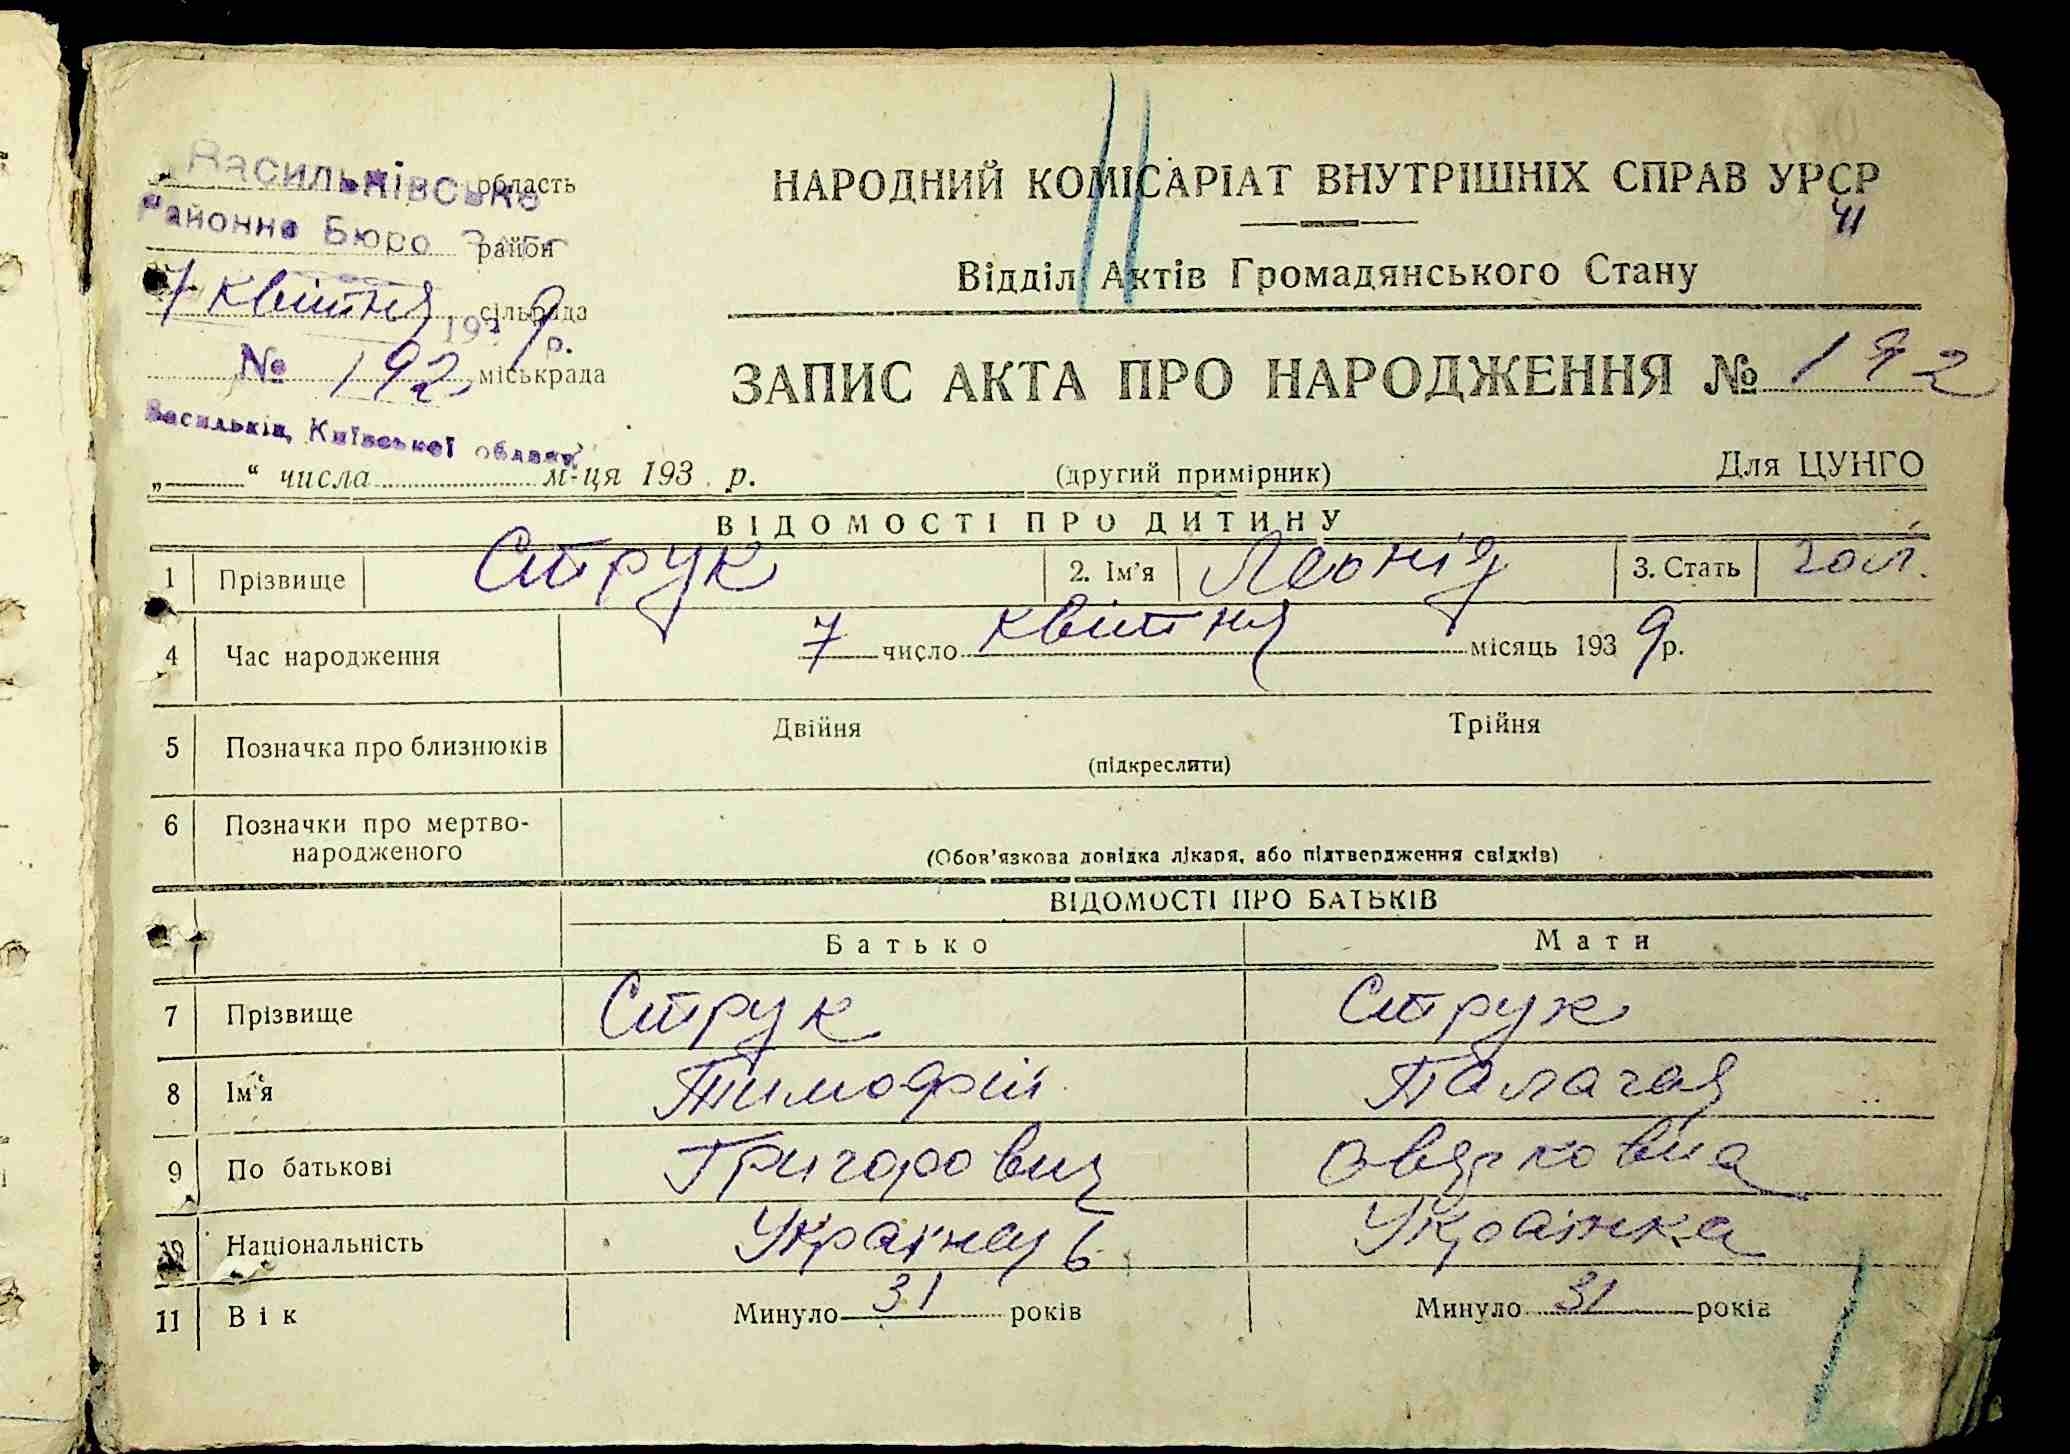 Васильківське область
Районне Бюро Загс район
7 квітня 1939 р. сільрада
№ 192 міськрада
Васильків, Київської області
„ “ числа м-ця 193 р.
НАРОДНИЙ КОМІСАРІАТ ВНУТРІШНІХ СПРАВ УРСР
41
Відділ Актів Громадянського Стану
ЗАПИС АКТА ПРО НАРОДЖЕННЯ № 192
(другий примірник) Для ЦУНГО
ВІДОМОСТІ ПРО ДИТИНУ
1 Прізвище Струк 2. Ім'я Леонід 3. Стать чол.
4 Час народження 7 число квітня місяць 1939 р.
5 Позначка про близнюків Двійня Трійня
(підкреслити)
6 Позначки про мертво-
народженого
(Обов'язкова довідка лікаря, або підтвердження свідків)
ВІДОМОСТІ ПРО БАТЬКІВ
Батько Мати
7 Прізвище Струк Струк
8 Ім'я Тимофій Палагая
9 По батькові Григорович
10 Національність Українець Українка
11 Вік Минуло 31 років Минуло 31 років